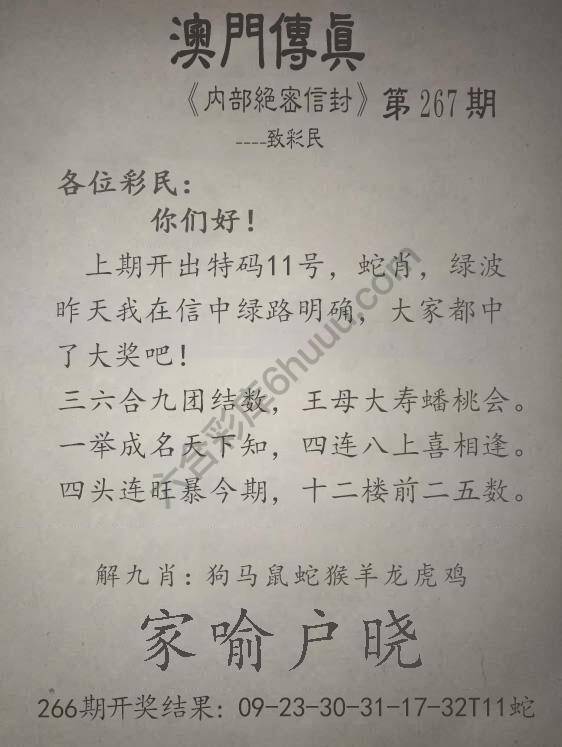 澳門傳眞
《内部絕密信封》第267期
----致彩民
各位彩民：
你们好！
上期开出特码11号，蛇肖，绿波
昨天我在信中绿路明确，大家都中
了大奖吧！
三六合九团结数，王母大寿蟠桃会。
一举成名天下知，四连八上喜相逢。
四头连旺暴今期，十二楼前二五数。
六合彩库6huuu.com
解九肖：狗马鼠蛇猴羊龙虎鸡
家喻户晓
266期开奖结果：09-23-30-31-17-32T11蛇